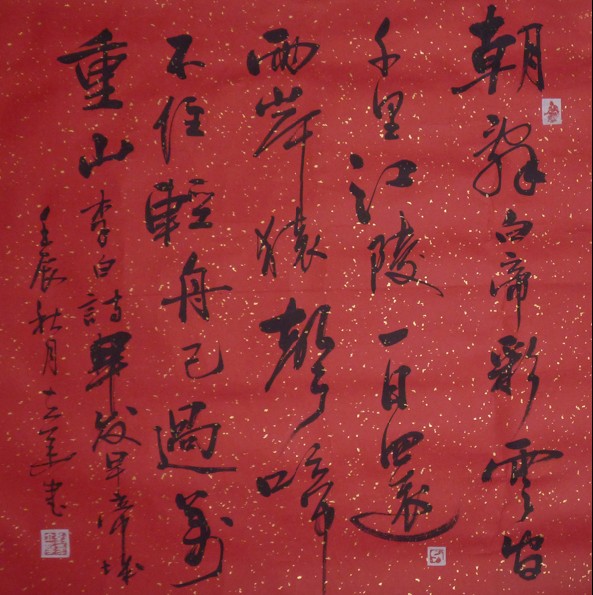 朝辭白帝彩雲間
千里江陵一日還
兩岸猿聲啼
不住輕舟已過萬
重山 李白詩早发早帝城
壬辰秋月 书